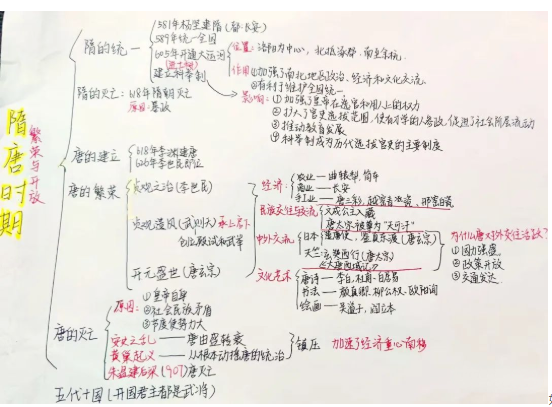 隋唐时期
繁荣与开放
隋的统一
581年杨坚建隋（都:长安）
589年统一全国
605年开通大运河
（隋炀帝）
位置:洛阳为中心，北抵涿郡，南至余杭。
作用:①加强了南北地区政治、经济和文化交流。
②有利于维护全国统一
建立科举制
影响:①加强了皇帝在选官和用人上的权力
②扩大了官吏选拔范围，使有才学的人参政，促进了社会阶层流动
③推动教育发展
④科举制成为历代选拔官吏的主要制度
隋的灭亡:618年隋朝灭亡
原因:暴政
唐的建立
618年李渊建唐
626年李世民即位
唐的繁荣
贞观之治(李世民)
贞观遗风(武则天)承上启下
创立殿试和武举
开元盛世(唐玄宗)
经济:
农业—曲辕犁,筒车
商业—长安
手工业—唐三彩,越窑青瓷,邢窑白瓷
民族交往与交流
文成公主入藏
唐太宗被尊为“天可汗”
中外交流
日本:遣唐使、鉴真东渡(唐玄宗)
天竺:玄奘西行(唐太宗)
《大唐西域记》
为什么唐对外交往活跃?
①国力强盛
②政策开放
③交通发达
文化艺术
唐诗—李白.杜甫.白居易
书法—颜真卿,柳公权、欧阳询
绘画—吴道子,阎立本
唐的灭亡
原因:①皇帝自身
②社会民族矛盾
③节度使势力大
安史之乱——唐由盛转衰
黄巢起义——从根本动摇唐的统治
朱温建后梁(907)唐灭亡
镇压
加速了经济重心南移
五代十国(开国君主都是武将)